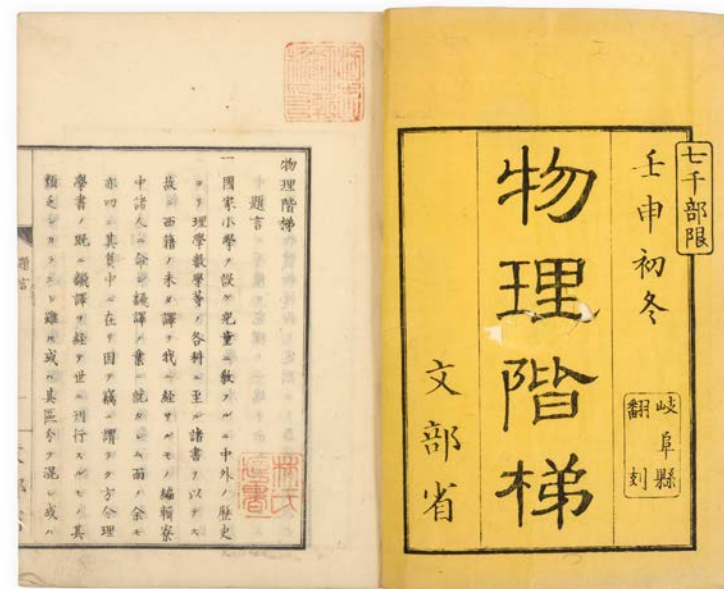 七千部限
壬申初冬
岐阜縣
翻刻
物理階梯
文部省
物理階梯
題言
一國家小學ヲ設ケ兒童ヲ敎フルニ中外ノ歷史
ヨリ理學數學等ノ各科ニ至ル諸書ヲ以テス
故ニ西籍ノ未タ譯ヲ我ニ經サルモノ編輯寮
中諸人ニ命シ飜譯ノ業ニ就カシム而ノ余モ
亦叨ニ其員中ニ在リ因テ竊ニ謂ラク方今理
學書ノ既ニ飜譯ヲ經テ世ニ刊行スルモノ其
類乏シカラスト雖モ或ハ其區分ヲ混シ或ハ
題言